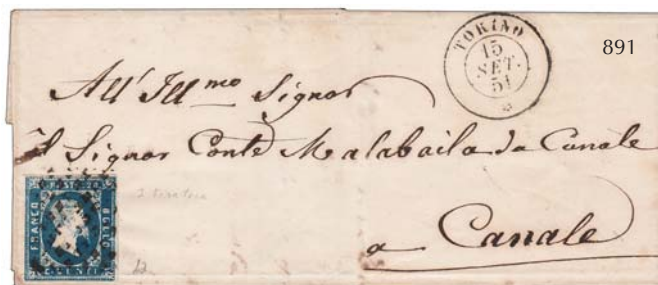 TORINO
15
SET.
51
891
All' Ill.mo Signor
Il Signor Conte Malabaila da Canale
a Canale
FRANCO
C.ST.20
BOLLO
CENT.